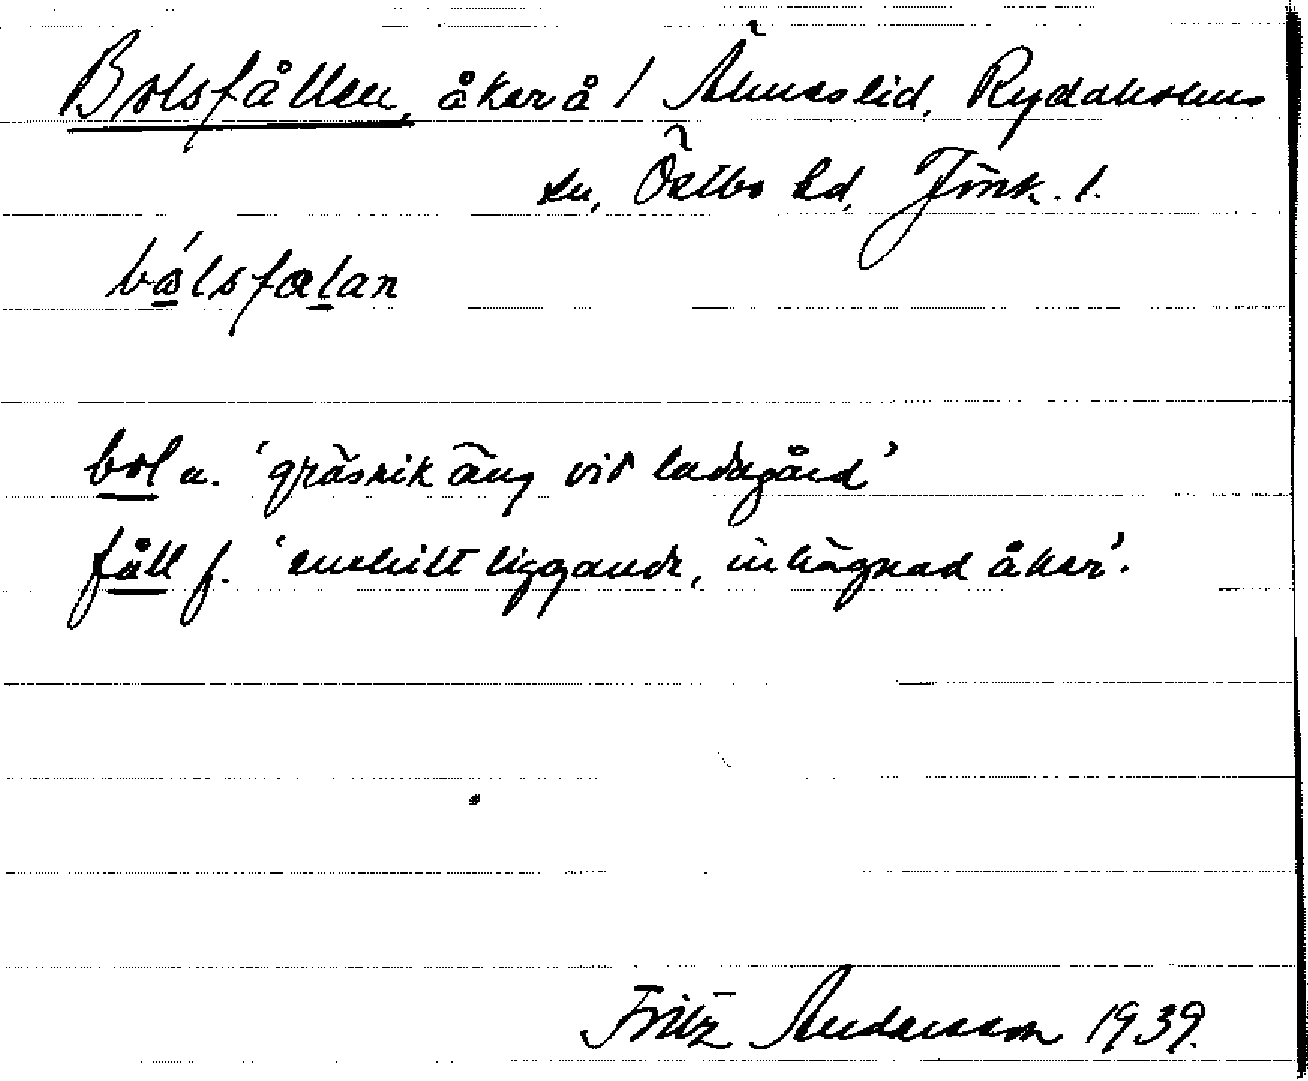 Bolsfållen, åker å / Älmeslid, Rydaholms
sn, Östbo hd, Jönk. l.
bålsfœlan
bol n. 'gräsrik äng vid ladugård'
fåll f. 'enskilt liggande, inhägnad åker'.
Fritz Andersson 1939.